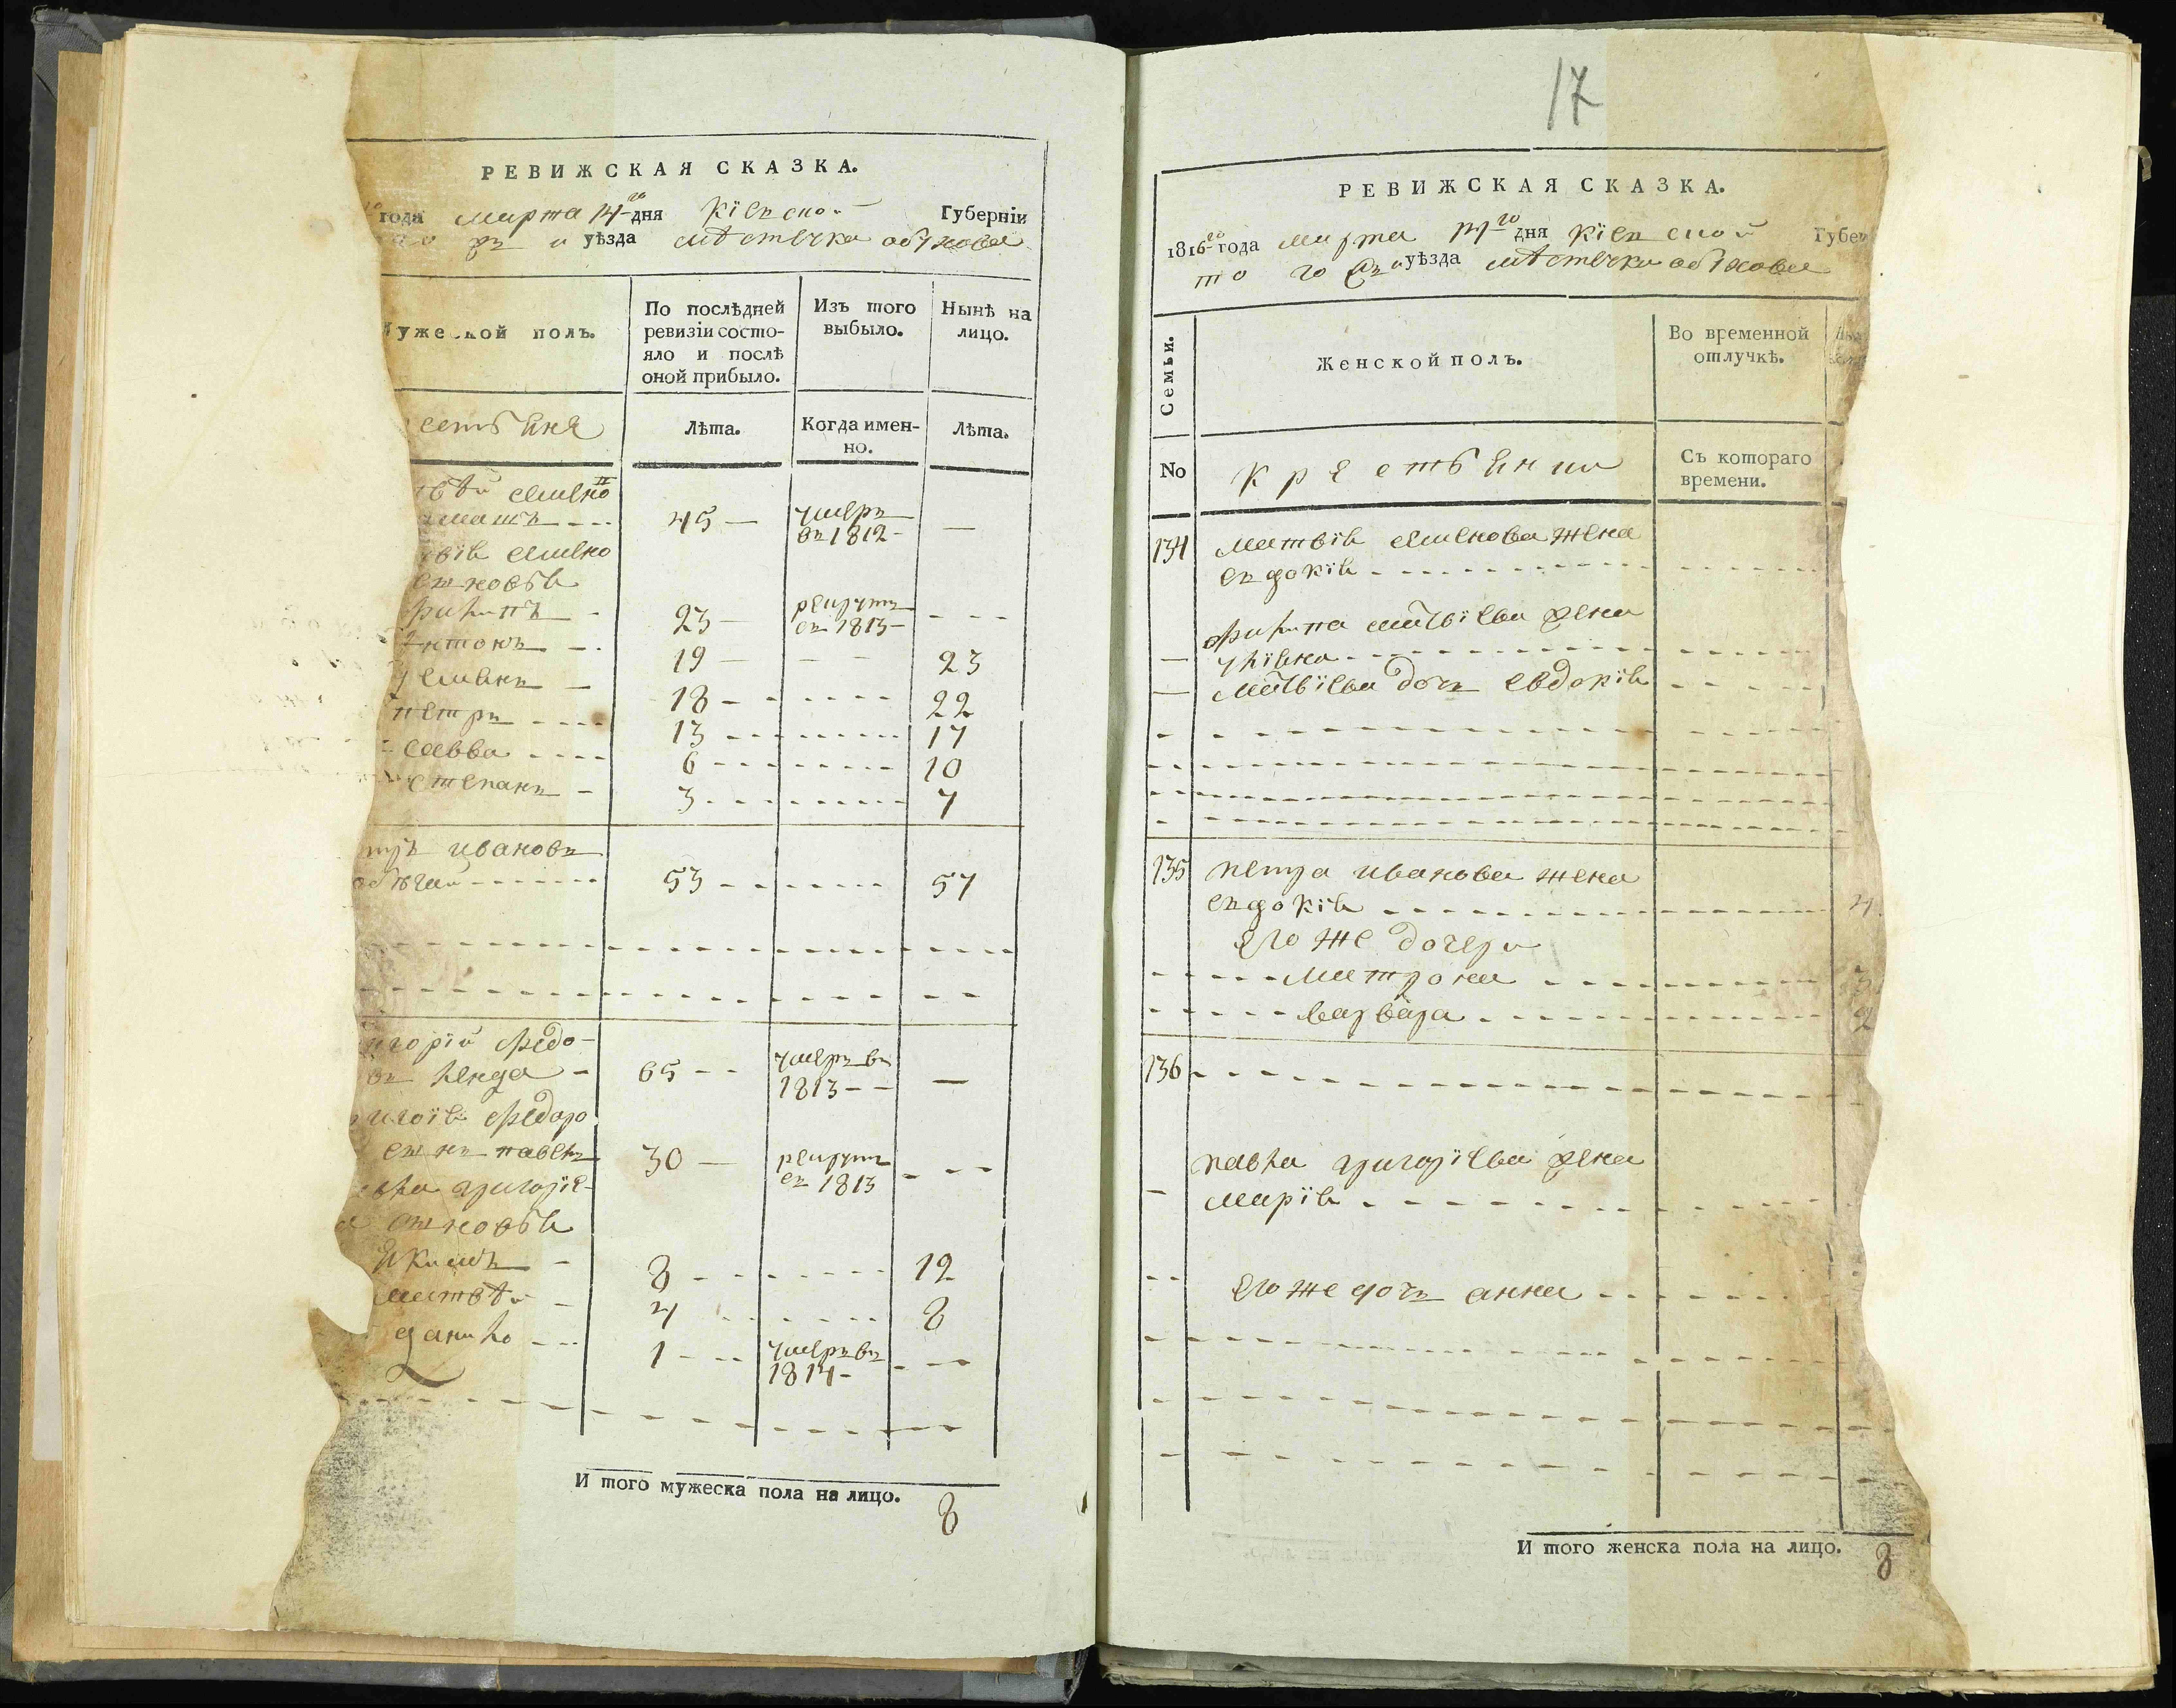 РЕВИЖСКАЯ СКАЗКА.
года марта 14го дня Кіевской Губерніи
уѣзда мѣстечка обухова
Мужеской полъ.
По послѣдней ревизіи состо-
яло и послѣ
оной прибыло.
Изъ того
выбыло.
Нынѣ на
лицо.
Лѣта.
Когда имен-
но.
Лѣта.
твѣй семено
45 — умеръ
въ 1812 - —
твія семено
сыновья
филипъ - 23 — рекрутъ
въ 1813 - - - -
антонъ - 19 — - - 23
демянъ - 18 - - - - 22
петръ - - - - 13 - - - - 17
савва - - - - 6 - - - - 10
степанъ - 3 - - - - 7
тръ ивановъ
53 - - - - 57
игорій федо-
въ ленда - 65 - - умеръ въ
1813 - - —
федоро
сынъ павелъ 30 — рекрутъ
въ 1813 - - -
вла григоріе-
а сыновья
якимъ - 8 - - - - 12
матвѣй - 4 - - - - 8
данило - - - 1 - - - умеръ въ
1814 - - - -
И того мужеска пола на лицо. 8
17
РЕВИЖСКАЯ СКАЗКА.
1816го года марта 14го дня Кіевской Губер
того уѣзда мѣстечка обухова
Семьи.
Женской полъ.
Во временной
отлучкѣ.
No
крестьяни
Съ котораго
времени.
134 матвія семенова жена
евдокія - - - -
филипа матвіева жена
— уліяна - - - -
— матвіева дочь евдокія - - - -
135 петра иванова жена
евдокія - - - - 4
его же дочери
- - - матрона - - - - 3
- - - варвара - - - - 2
136 - - - -
павла григоріева жена
— марія - - - -
- - его же дочь анна - - - -
И того женска пола на лицо. 8